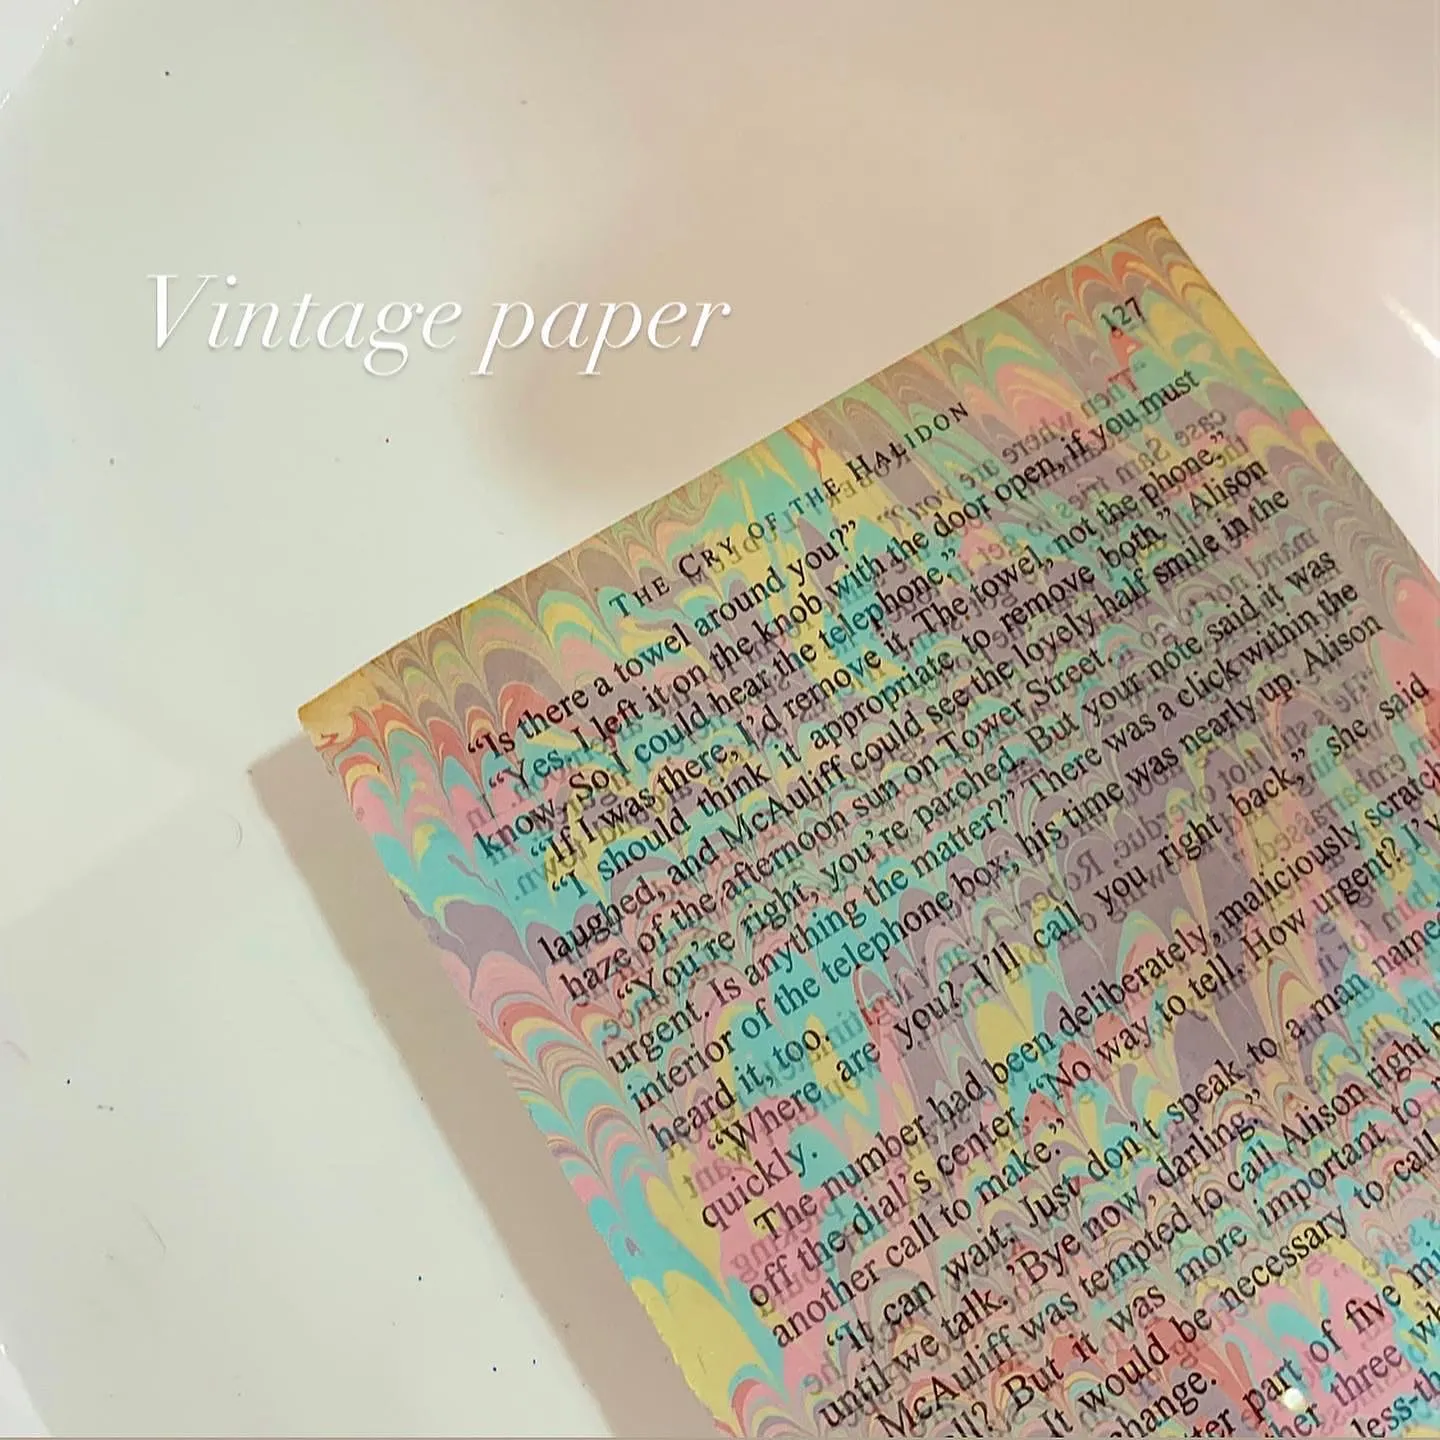 Vintage paper
127
THE CRY OF THE HALIDON
“Is there a towel around you?”
“Yes. I left it on the knob with the door open, if you must
know. So I could hear the telephone.”
“If I was there, I’d remove it. The towel, not the phone.”
“I should think it appropriate to remove both,” Alison
laughed, and McAuliff could see the lovely half smile in the
haze of the afternoon sun on Tower Street.
“You’re right, you’re parched. But your note said it was
urgent. Is anything the matter?” There was a click within the
interior of the telephone box; his time was nearly up. Alison
heard it, too.
“Where are you? I’ll call you right back,” she said
quickly.
The number had been deliberately, maliciously scratch
off the dial’s center. “No way to tell. How urgent? I’v
another call to make.”
“It can wait. Just don’t speak to a man named
until we talk. ’Bye now, darling.”
McAuliff was tempted to call Alison right b
But it was more important to
It would be necessary to call
change.
part of five
three
less-th